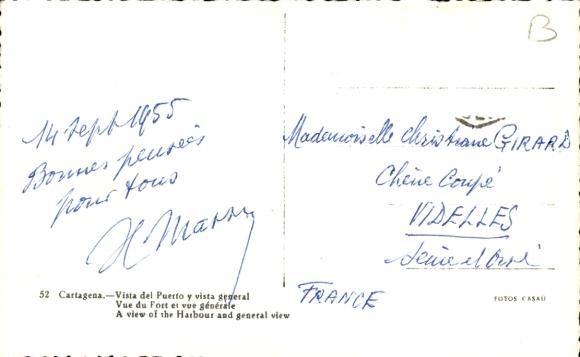 B
14 Sept 1955
Bonnes pensées
pour tous
Mademoiselle Christiane GIRARD
Chêne Coupé
VIDELLES
Seine et Oise
FRANCE
52 Cartagena.—Vista del Puerto y vista general
Vue du Fort et vue générale
A view of the Harbour and general view
FOTOS CASAU